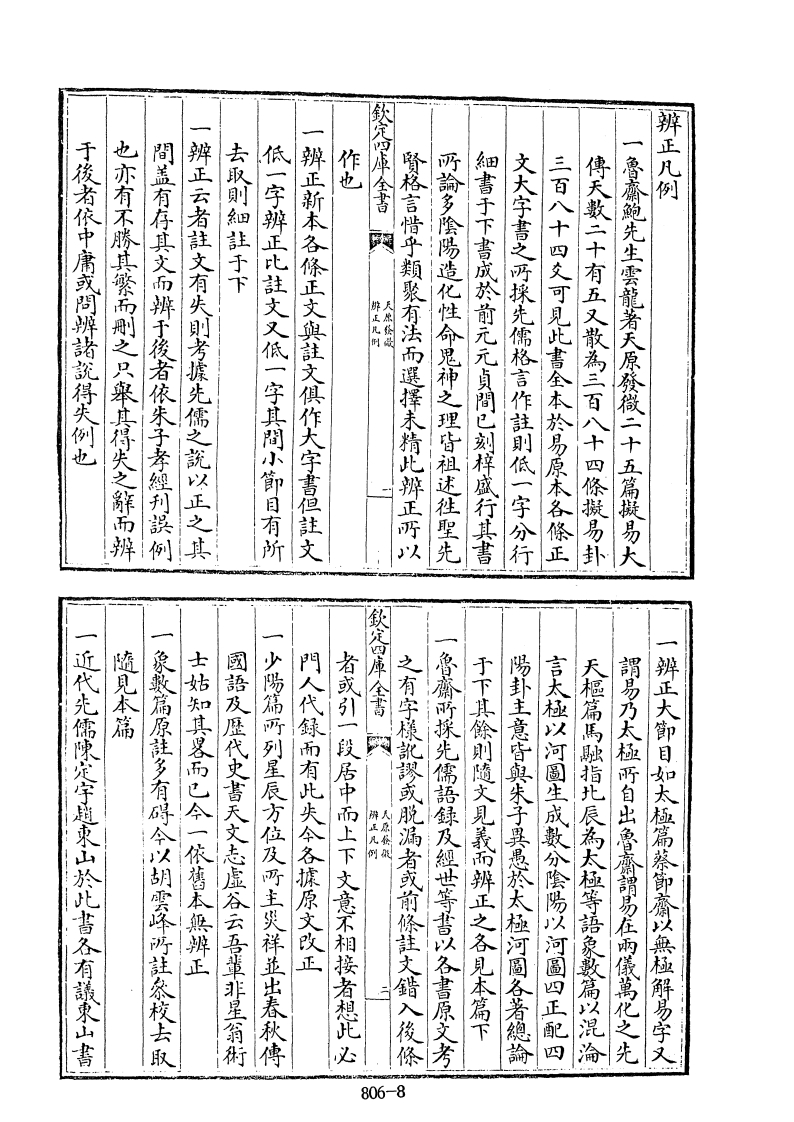 辨正凡例
一魯齋鮑先生雲龍著天原發微二十五篇擬易大
傳天數二十有五又散為三百八十四條擬易卦
三百八十四爻可見此書全本於易原本各條正
文大字書之所採先儒格言作註則低一字分行
細書于下書成於前元元貞間已刻梓盛行其書
所論多陰陽造化性命鬼神之理皆祖述徃聖先
賢格言惜乎類聚有法而選擇未精此辨正所以
欽定四庫全書
天原發微
辨正凡例
一
作也
一辨正新本各條正文與註文俱作大字書但註文
低一字辨正比註文又低一字其間小節目有所
去取則細註于下
一辨正云者註文有失則考據先儒之說以正之其
間盖有存其文而辨于後者依朱子孝經刊誤例
也亦有不勝其繁而刪之只舉其得失之辭而辨
于後者依中庸或問辨諸說得失例也
一辨正大節目如太極篇蔡節齋以無極解易字又
謂易乃太極所自出魯齋謂易在兩儀萬化之先
天樞篇馬融指北辰為太極等語象數篇以混淪
言太極以河圖生成數分陰陽以河圖四正配四
陽卦主意皆與朱子異愚於太極河圖各著總論
于下其餘則隨文見義而辨正之各見本篇下
一魯齋所採先儒語録及經世等書以各書原文考
之有字様訛謬或脱漏者或前條註文錯入後條
欽定四庫全書
天原發微
辨正凡例
二
者或引一段居中而上下文意不相接者想此必
門人代録而有此失今各據原文改正
一少陽篇所列星辰方位及所主災祥並出春秋傳
國語及歴代史書天文志虚谷云吾輩非星翁術
士姑知其畧而已今一依舊本無辨正
一象數篇原註多有碍今以胡雲峰所註叅校去取
隨見本篇
一近代先儒陳定宇趙東山於此書各有議東山書
806-8